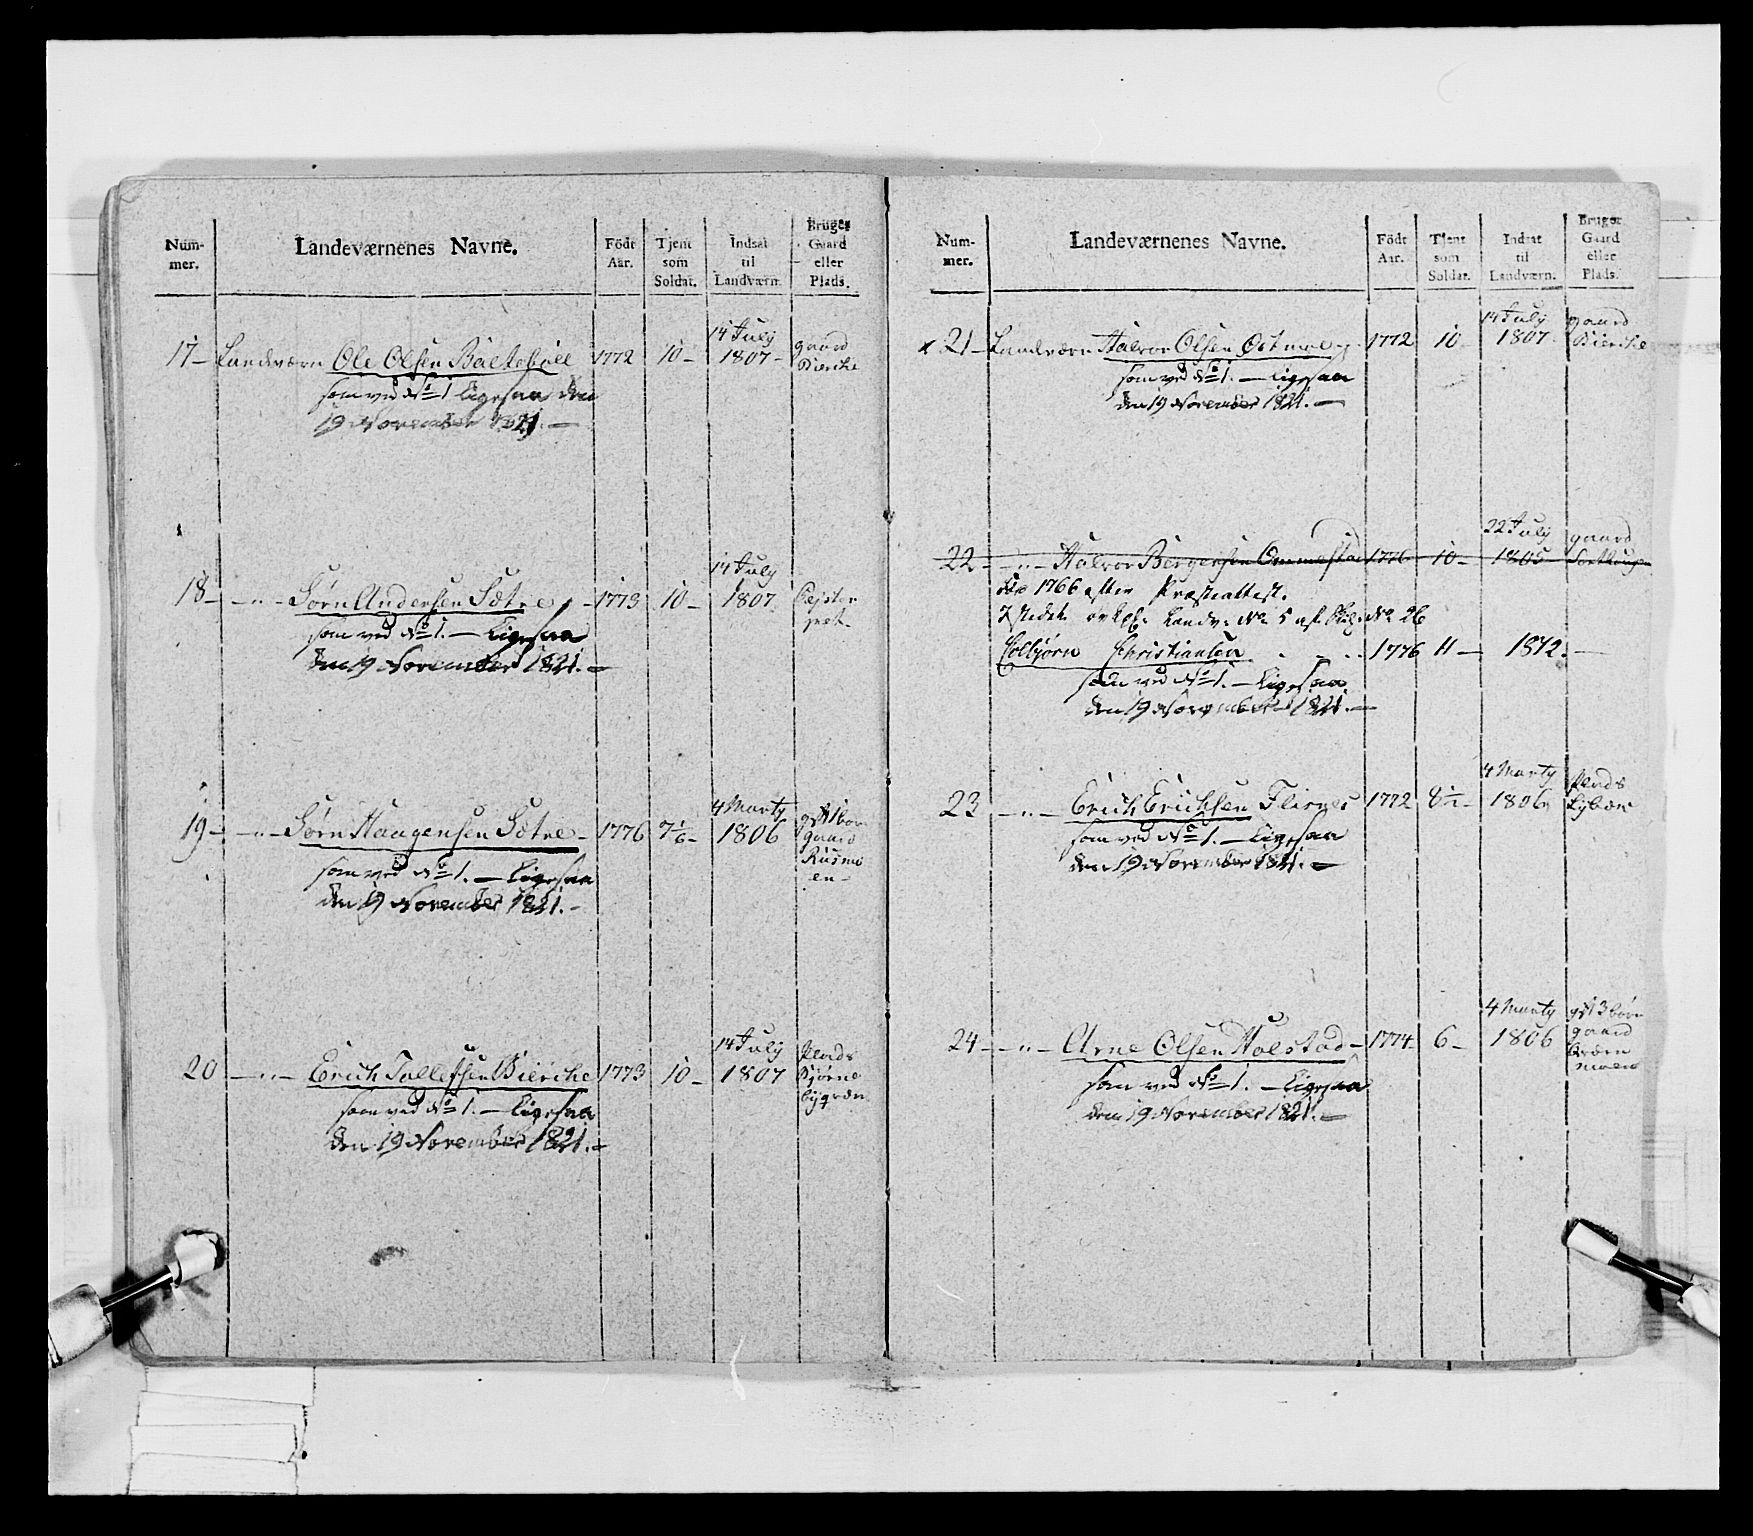 Num-
mer.
Landeværnenes Navne.
Födt
Aar.
Tjent
som
Soldat.
Indsat
til
Landværn.
Bruger
Gaard
eller
Plads.
17 - Landværn Ole Olsen 1772 10 - 14 July 1807 - gaard Bierche
som ved No 1 Ligesaa den
19 November 1821. -
18 - - " - Sørn Andersen Sætre - 1773 10 - 14 July 1807
som ved No 1. - Ligesaa
den 19 November 1821. -
19 - - " - Sørn Haagensen Sætre - 1776 7 1/6 - 4 Marty 1806 gaard
som ved No 1. - Ligesaa
den 19 November 1821. -
20 - " - Erich Tollefsen Bierche 1773 10 - 14 July 1807 Plads
som ved No 1. - Ligesaa
den 19 November 1821. -
Num-
mer.
Landeværnenes Navne.
Födt
Aar.
Tjent
som
Soldat.
Indsat
til
Landværn.
Bruger
Gaard
eller
Plads.
x 21 - Landværn Halvor Olsen 1772 10 - 14 July 1807 - gaard Bierche
som ved No 1. - Ligesaa
den 19 November 1821. -
22 - - " - Halvor Bergersen Ommestad 1776 10 - 22 July 1805 gaard
1766 efter Præsteattest.
I stedet Landv. No 5 af No 26
Colbjørn Christiansen . - . . 1776 11 - 1812. -
som ved No 1. - Ligesaa
den 19 November 1821. -
23 - " - Erich Erichsen Flisnes 1772 8 1/2 - 4 Marty 1806 Plads
som ved No 1. - Ligesaa
den 19 November 1821. -
24 - - " - Arne Olsen Holstad - 1774 6 - 4 Marty 1806 gift 3 børn gaard
som ved No 1. - Ligesaa
den 19 November 1821. -